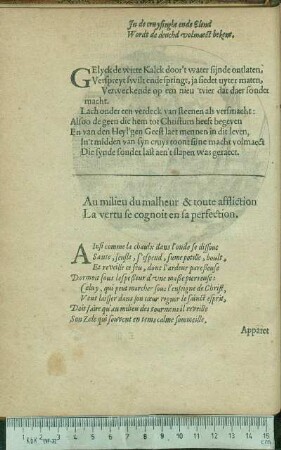 In de cruysinghe ende Elend
Wordt de deuchd volmaect bekent.
GElyck de witte Kalck door't water sijnde ontlaten,
Verspreyt swilt ende springt, ja siedet uyter maten,
Verweckende op een nieu 'tvier dat daer sonder
macht.
Lach onder een verdeck van steenen als versmacht:
Alsoo de geen die hem tot Christum heeft begeven
En van den Heyl'gen Geest laet mennen in dit leven,
In't midden van sijn cruys toont sijne macht volmaect
Die synde sonder last aen't slapen was geraect.
Au milieu du malheur & toute affliction
La vertu se cognoit en sa perfection.
AInsi comme la chaulx dans l'onde se dissout
Saute, s'enfle, s'espend, fume petille, boult,
Et reveille ce feu, dont l'ardeur paresseuse
Dormoit sous l'espesseur d'une masse pierreuse:
Celuy, qui peut marcher sous l'enseigne de Christ,
Veut laisser dans son cœur regner le sainct esprit,
Doit faire qu'au milieu des tourmens il resveille
Son Zele qui souvent en temps calme sommeille.
Apparet